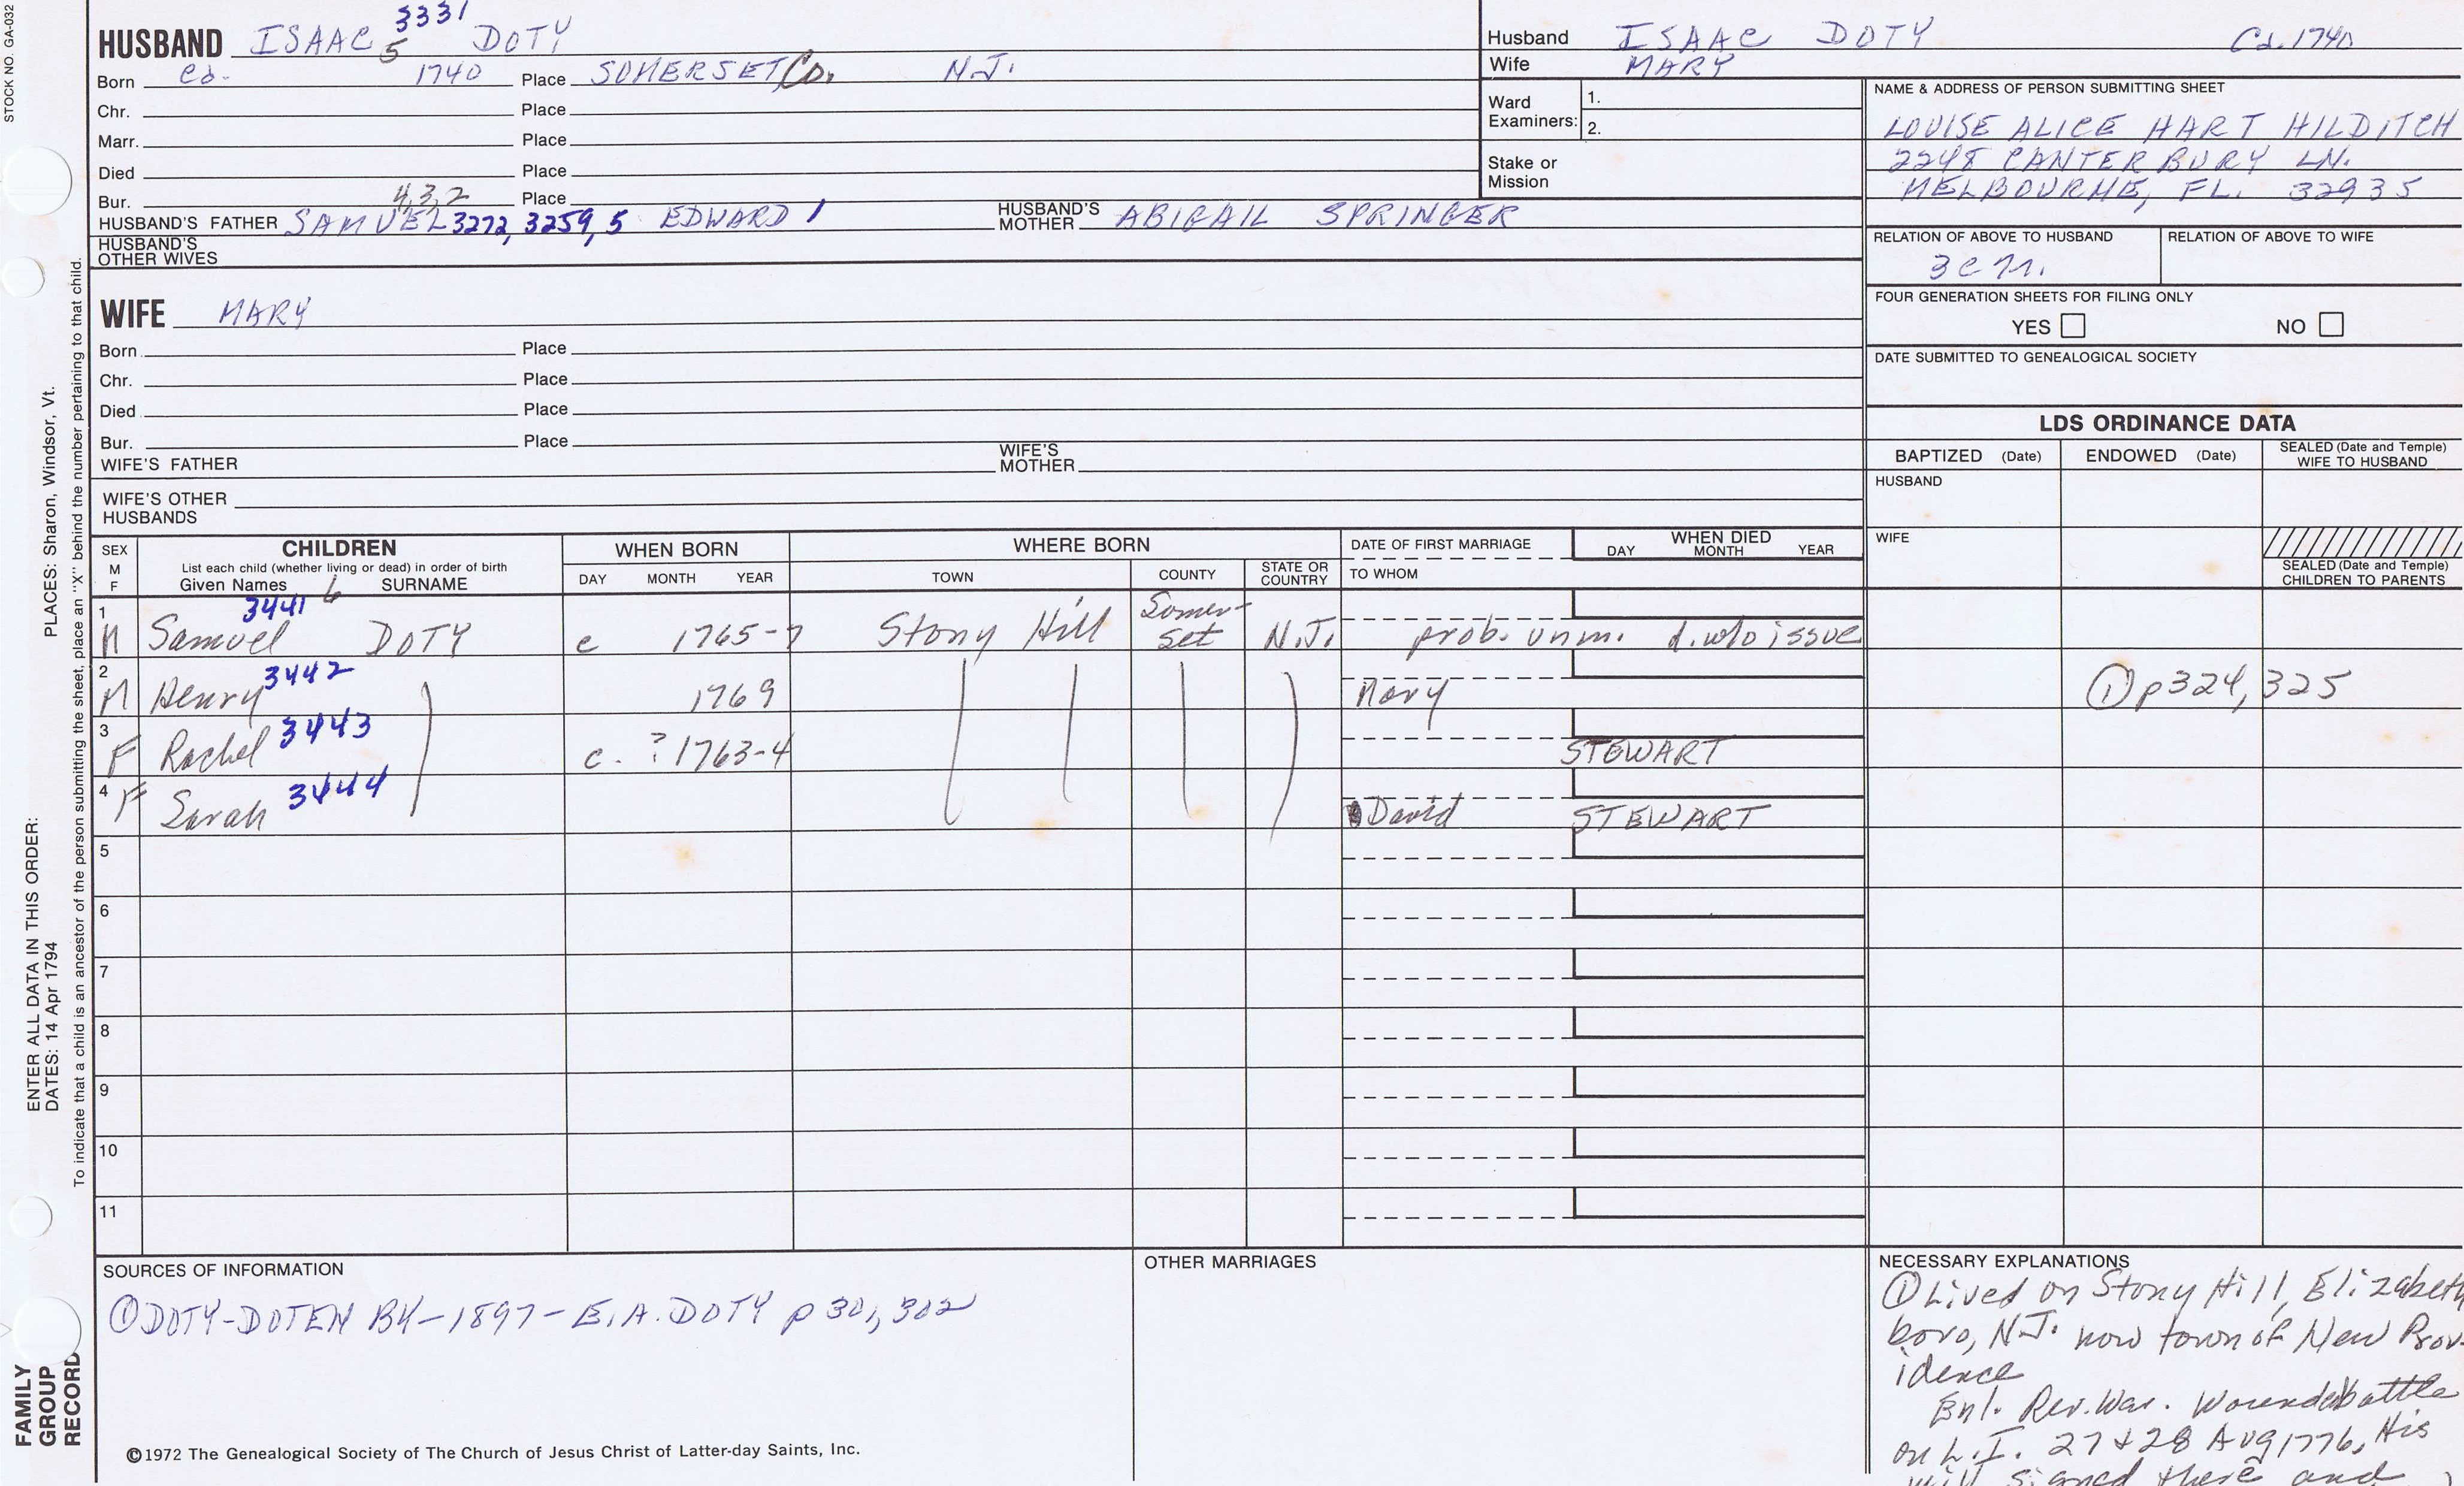 STOCK NO. GA-032
3331
HUSBAND ISAAC 5 DOTY
Born Cd. 1740 Place SOMERSET Co. N.J.
Chr. Place
Marr. Place
Died Place
Bur. Place
4,3,2
HUSBAND'S FATHER SAMUEL 3272, 3259, 5 EDWARD 1 HUSBAND'S MOTHER ABIGAIL SPRINGER
HUSBAND'S OTHER WIVES
WIFE MARY
Born Place
Chr. Place
Died Place
Bur. Place
WIFE'S FATHER WIFE'S MOTHER
WIFE'S OTHER HUSBANDS
Husband ISAAC DOTY Cd. 1740
Wife MARY
Ward Examiners: 1.
2.
Stake or Mission
NAME & ADDRESS OF PERSON SUBMITTING SHEET
LOUISE ALICE HART HILDITCH
2248 CANTERBURY LN.
MELBOURNE, FL. 32935
RELATION OF ABOVE TO HUSBAND RELATION OF ABOVE TO WIFE
FOUR GENERATION SHEETS FOR FILING ONLY
YES NO
DATE SUBMITTED TO GENEALOGICAL SOCIETY
LDS ORDINANCE DATA
BAPTIZED (Date) ENDOWED (Date) SEALED (Date and Temple) WIFE TO HUSBAND
HUSBAND
WIFE
SEALED (Date and Temple) CHILDREN TO PARENTS
SEX M F CHILDREN WHEN BORN WHERE BORN DATE OF FIRST MARRIAGE WHEN DIED
List each child (whether living or dead) in order of birth
Given Names 6 SURNAME DAY MONTH YEAR TOWN COUNTY STATE OR COUNTRY TO WHOM DAY MONTH YEAR
1 M Samuel 3441 DOTY c 1765-7 Stony Hill Somer-set N.J. prob. unm. d. w/o issue
2 M Henry 3442 1769 Mary ① p324, 325
3 F Rachel 3443 c. ? 1763-4 STEWART
4 F Sarah 3444 David STEWART
5
6
7
8
9
10
11
SOURCES OF INFORMATION
① DOTY-DOTEN BK-1897- E.A. DOTY p 301, 302
©1972 The Genealogical Society of The Church of Jesus Christ of Latter-day Saints, Inc.
OTHER MARRIAGES
NECESSARY EXPLANATIONS
① Lived on Stony Hill, Elizabeth
boro, N.J. now town of New Prov-
idence
Enl. Rev. War. Wounded battle
on L.I. 27 + 28 Aug 1776, His
will signed there and
PLACES: Sharon, Windsor, Vt.
ENTER ALL DATA IN THIS ORDER:
DATES: 14 Apr 1794
To indicate that a child is an ancestor of the person submitting the sheet, place an "X" behind the number pertaining to that child.
FAMILY
GROUP
RECORD